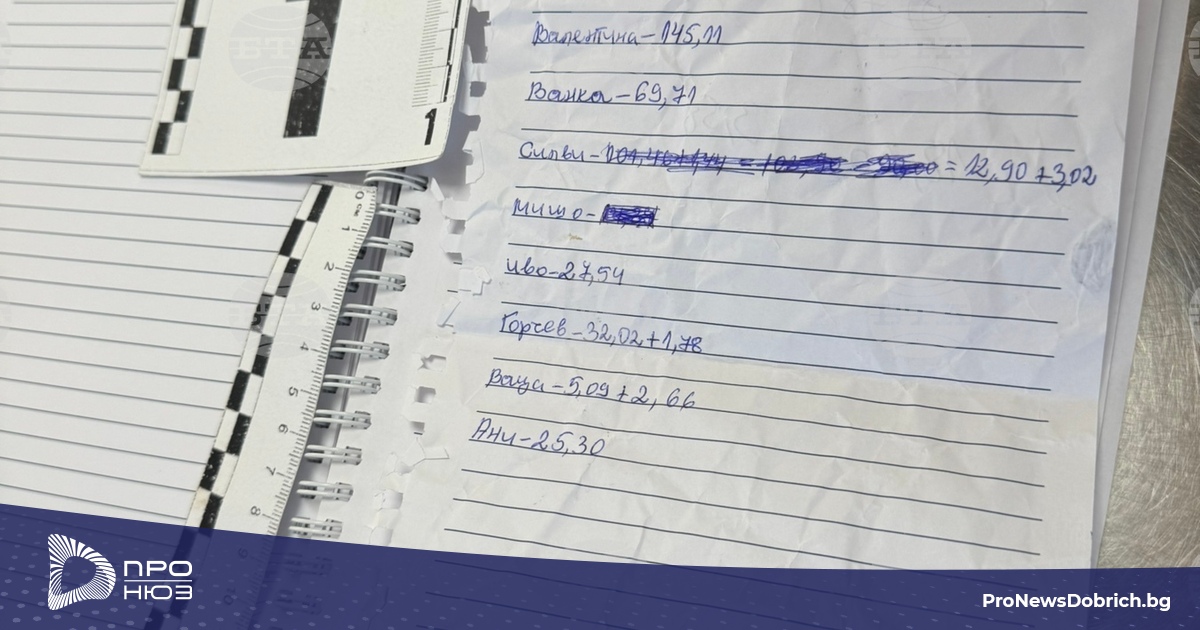 БТА
1
1
Валентина-145,11
Ванка-69,71
Силви- = 12,90+3,02
Мишо-
Иво-27,54
Горчев-32,02+1,78
Ваца-5,09+2,66
Ани-25,30
0 см 1 2 3 4 5 6 7 8
ПРО
НЮЗ
ProNewsDobrich.bg